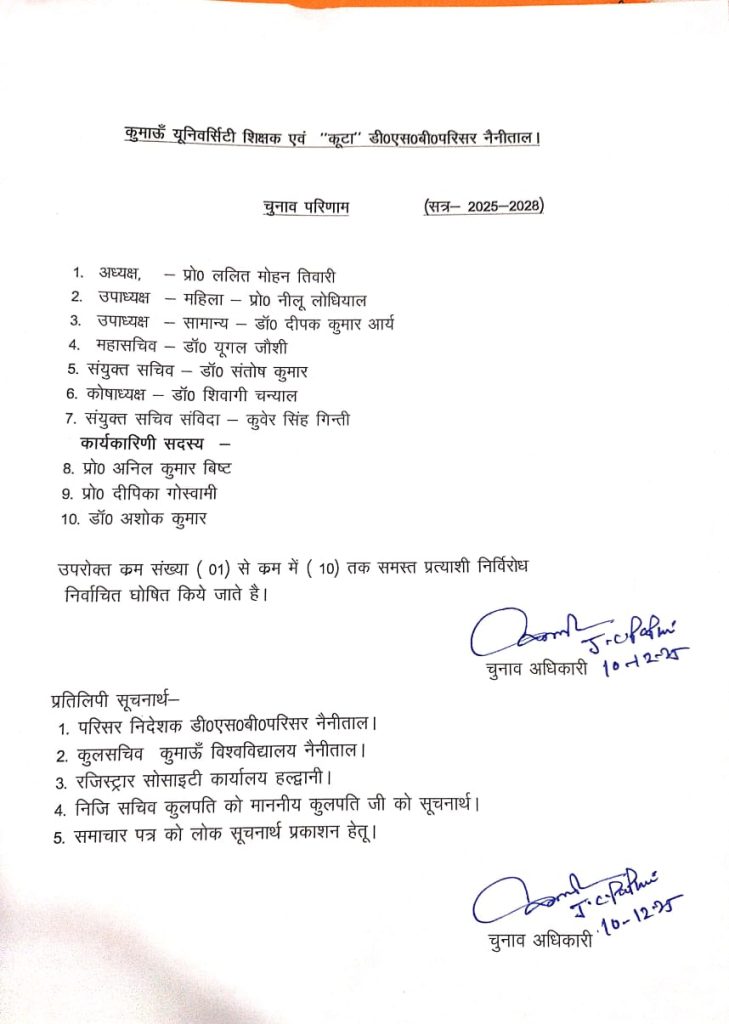 कुमाऊँ यूनिवर्सिटी शिक्षक एवं "कूटा" डी0एस0बी0परिसर नैनीताल।
चुनाव परिणाम (सत्र– 2025–2028)
1. अध्यक्ष, – प्रो0 ललित मोहन तिवारी
2. उपाध्यक्ष – महिला – प्रो0 नीलू लोधियाल
3. उपाध्यक्ष – सामान्य – डॉ0 दीपक कुमार आर्य
4. महासचिव – डॉ0 यूगल जौशी
5. संयुक्त सचिव – डॉ0 संतोष कुमार
6. कोषाध्यक्ष – डॉ0 शिवागी चन्याल
7. संयुक्त सचिव संविदा – कुवेर सिंह गिन्ती
कार्यकारिणी सदस्य –
8. प्रो0 अनिल कुमार बिष्ट
9. प्रो0 दीपिका गोस्वामी
10. डॉ0 अशोक कुमार
उपरोक्त क्रम संख्या ( 01) से क्रम में ( 10) तक समस्त प्रत्याशी निर्विरोध
निर्वाचित घोषित किये जाते है।
J.C.
चुनाव अधिकारी 10-12-25
प्रतिलिपी सूचनार्थ–
1. परिसर निदेशक डी0एस0बी0परिसर नैनीताल।
2. कुलसचिव कुमाऊँ विश्वविद्यालय नैनीताल।
3. रजिस्ट्रार सोसाइटी कार्यालय हल्द्वानी।
4. निजि सचिव कुलपति को माननीय कुलपति जी को सूचनार्थ।
5. समाचार पत्र को लोक सूचनार्थ प्रकाशन हेतू।
J.C.
चुनाव अधिकारी 10-12-25